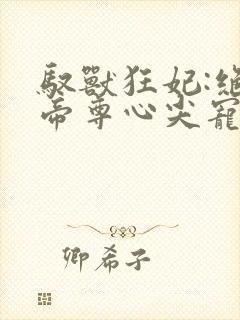 馭獸狂妃:絕
帝尊心尖寵
卿希子